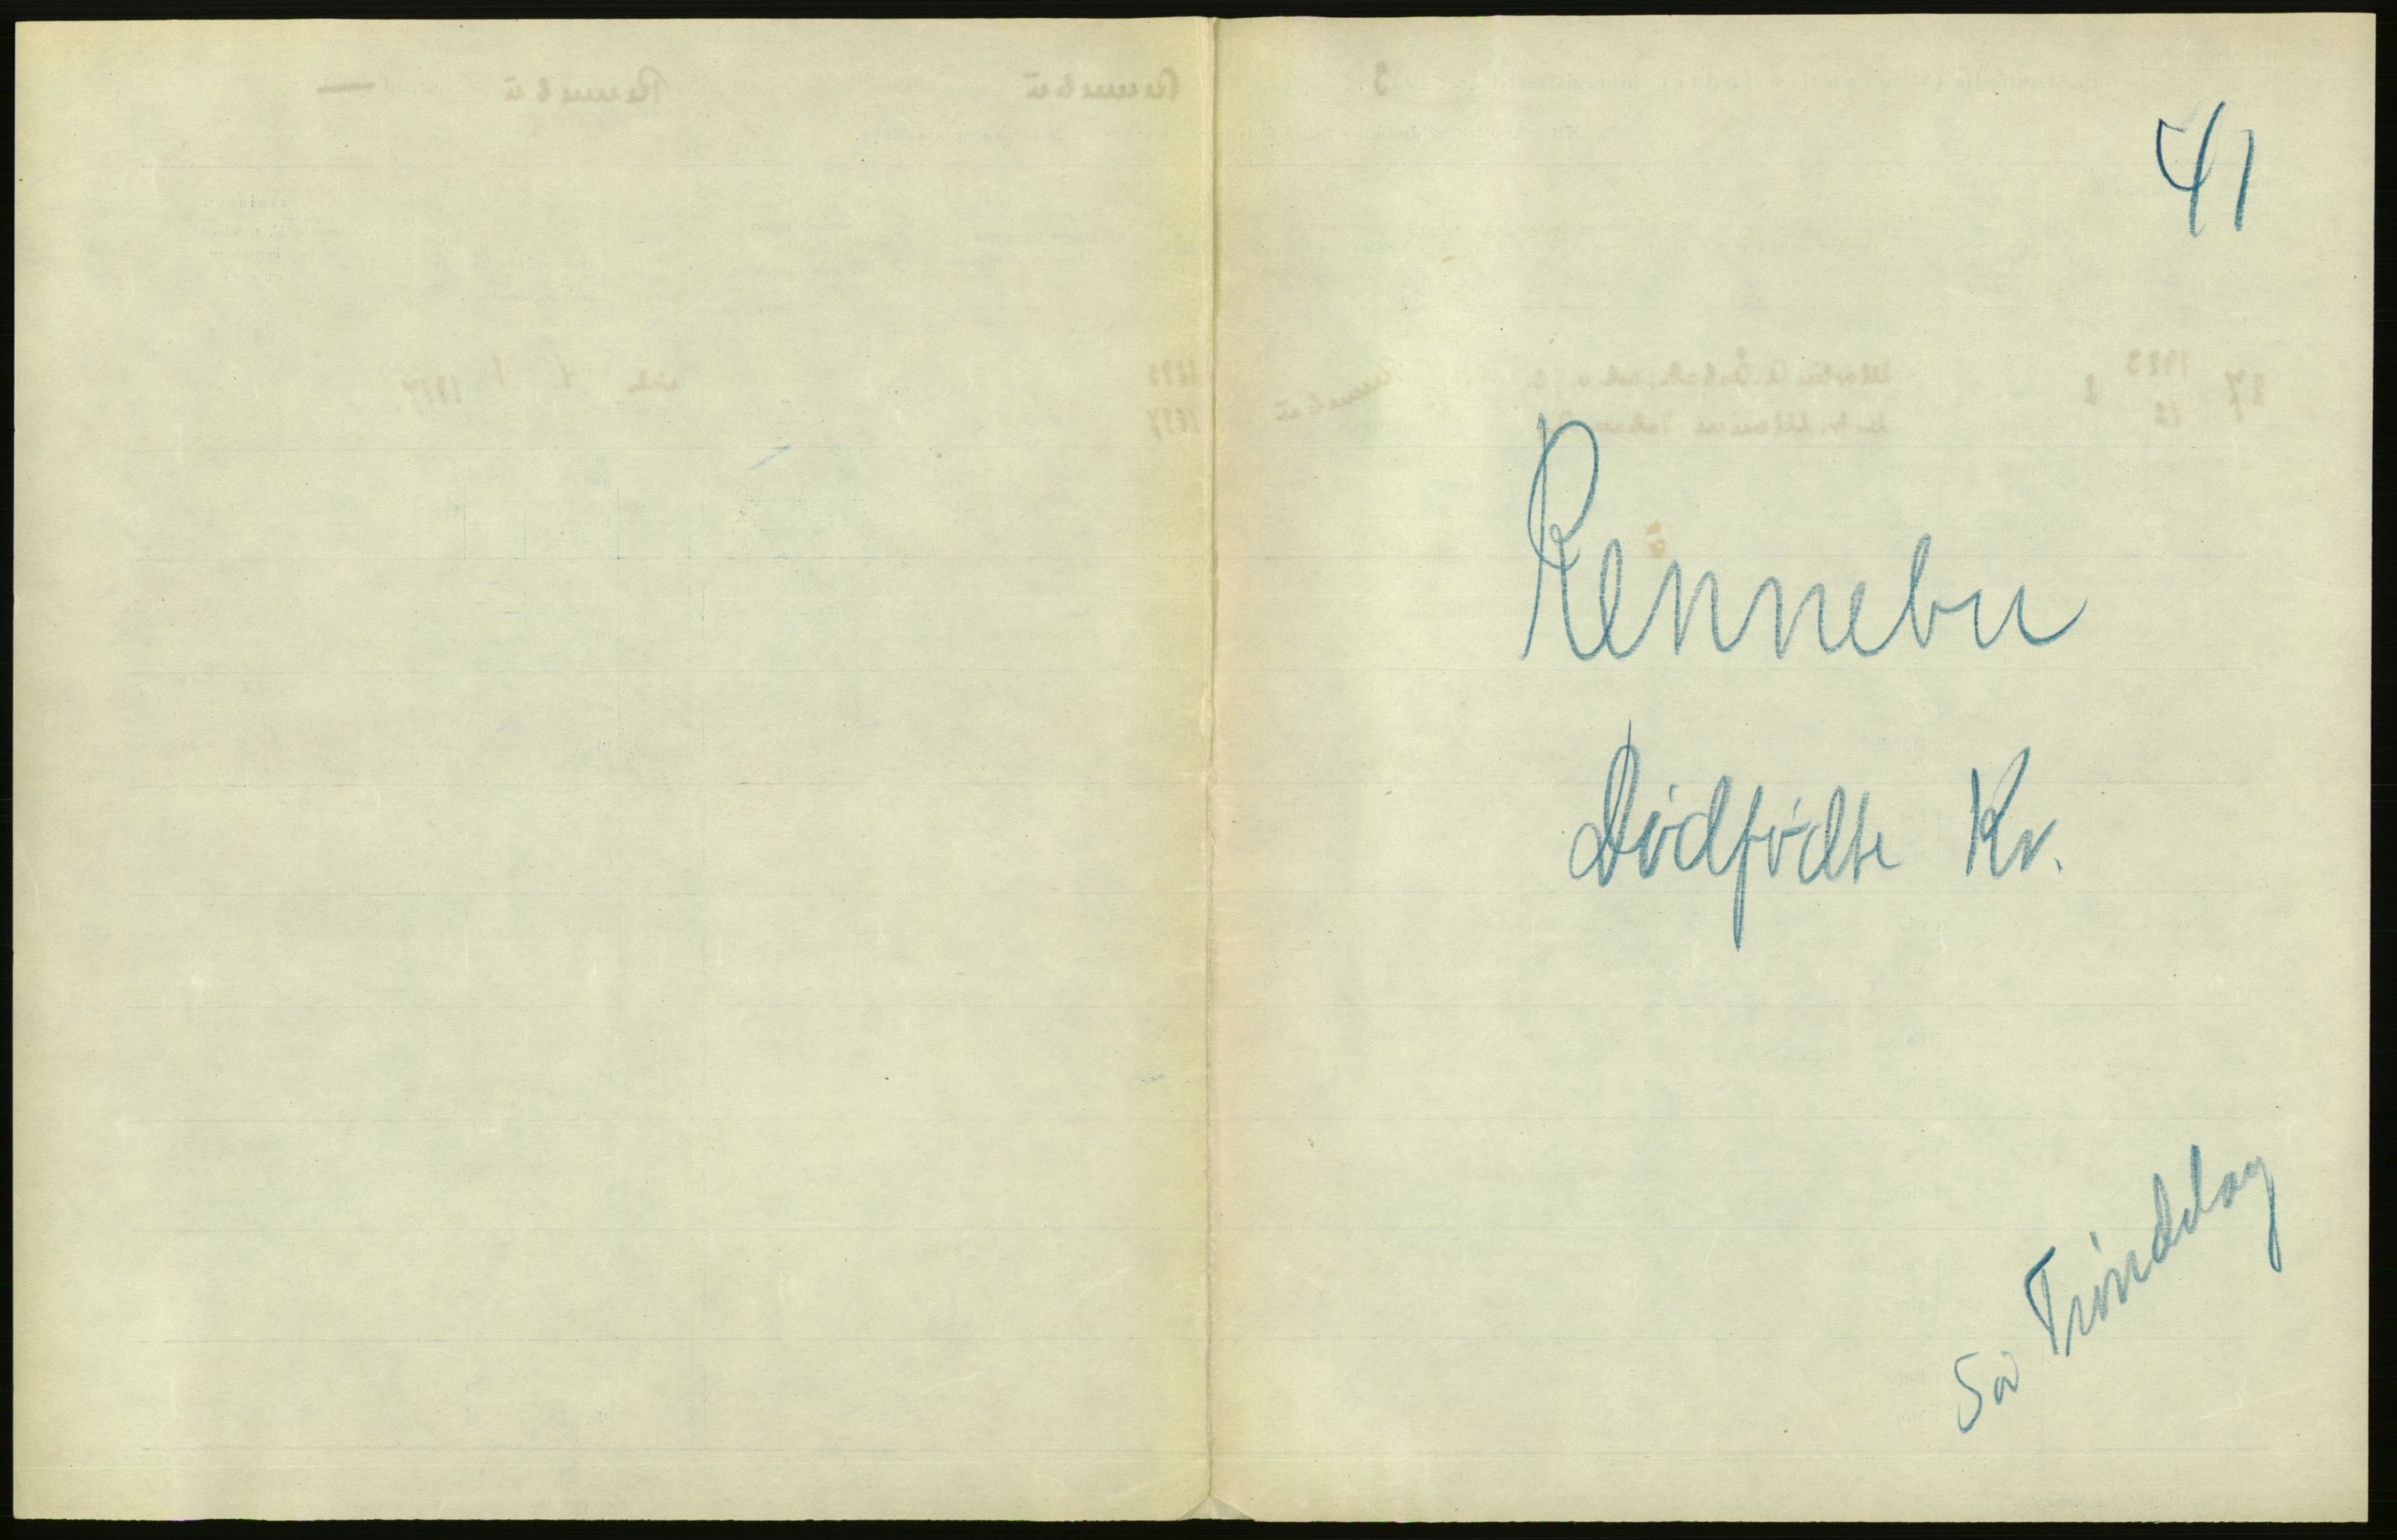 41
Rennebu
Dødfødte Kv.
Sø Trøndelag